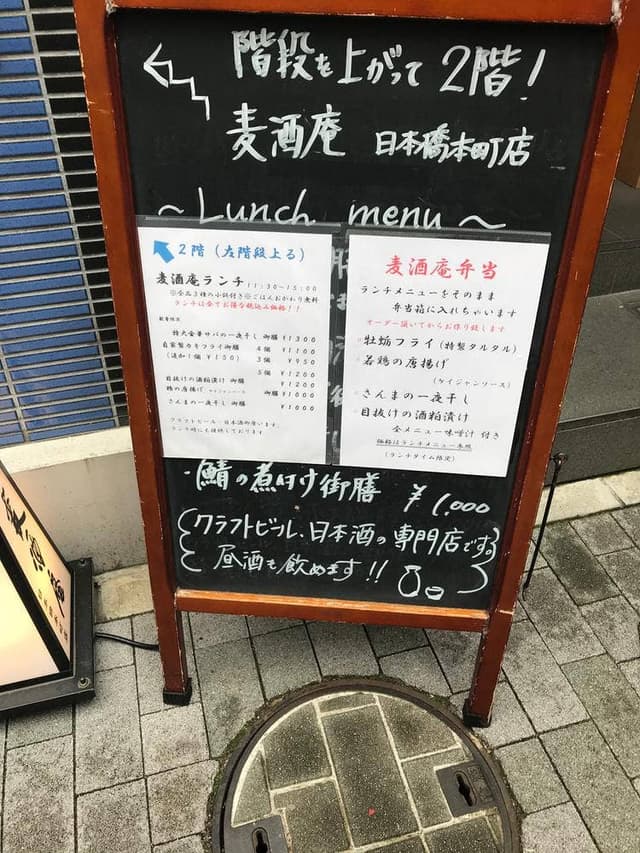 階段を上がって2階!
麦酒庵 日本橋本町店
~Lunch menu~
2階(左階段上る)
麦酒庵ランチ 11:30~15:00
※全品3種の小鉢付き※ごはんおかわり無料
ランチは全てお得な税込み価格!!
特大金華サバの一夜干し 御膳 ¥1300
自家製カキフライ御膳 4個 ¥1100
(追加1個 ¥150) 3個 ¥950
5個 ¥1200
目抜けの酒粕漬け 御膳 ¥1200
鶏の唐揚げ 御膳 ¥1000
さんまの一夜干し 御膳 ¥1000
クラフトビール・日本酒御座います。
ランチ時にも提供しております
麦酒庵弁当
ランチメニューをそのまま
弁当箱に入れちゃいます
オーダー頂いてからお作り致します
牡蛎フライ(特製タルタル)
若鶏の唐揚げ
(ケイジャンソース)
さんまの一夜干し
目抜けの酒粕漬け
全メニュー味噌汁 付き
価格はランチメニュー準拠
(ランチタイム限定)
・鯖の煮付け御膳 ¥1,000
クラフトビール、日本酒の専門店です。
昼酒も飲めます!!